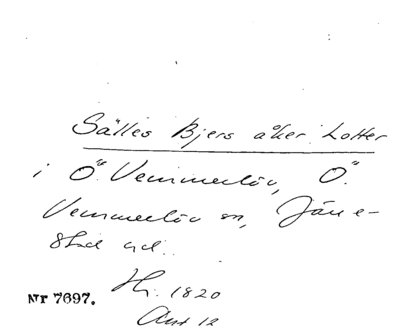 Sälles Bjers åker Lotter
i Ö. Vemmerlöv, Ö.
Vemmerlöv sn, Järre-
stad hd.
Hs. 1820
Nr 7697.
Akt 12